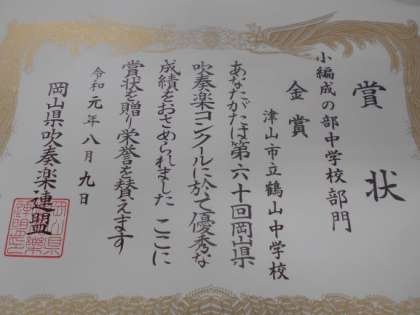 賞状
小編成の部中学校部門
金賞
津山市立鶴山中学校
あなたがたは第六十回岡山県
吹奏楽コンクールに於て優秀な
成績をおさめられました ここに
賞状を贈り栄誉を讃えます
令和元年八月九日
岡山県吹奏楽連盟